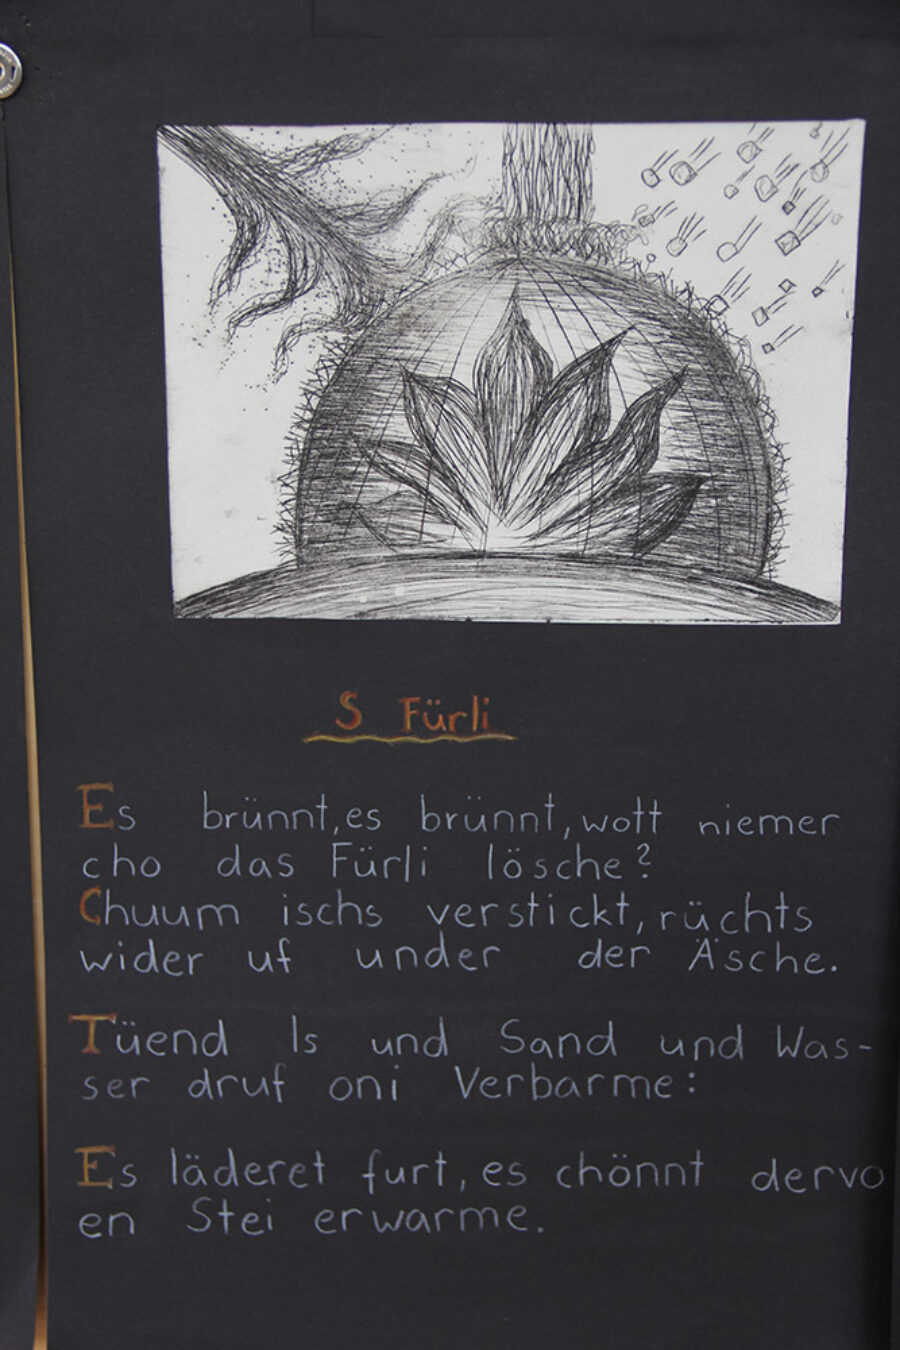 S Fürli
Es brünnt, es brünnt, wott niemer
cho das Fürli lösche?
Chuum ischs verstickt, rüchts
wider uf under der Äsche.
Tüend Is und Sand und Was-
ser druf oni Verbarme:
Es läderet furt, es chönnt dervo
en Stei erwarme.